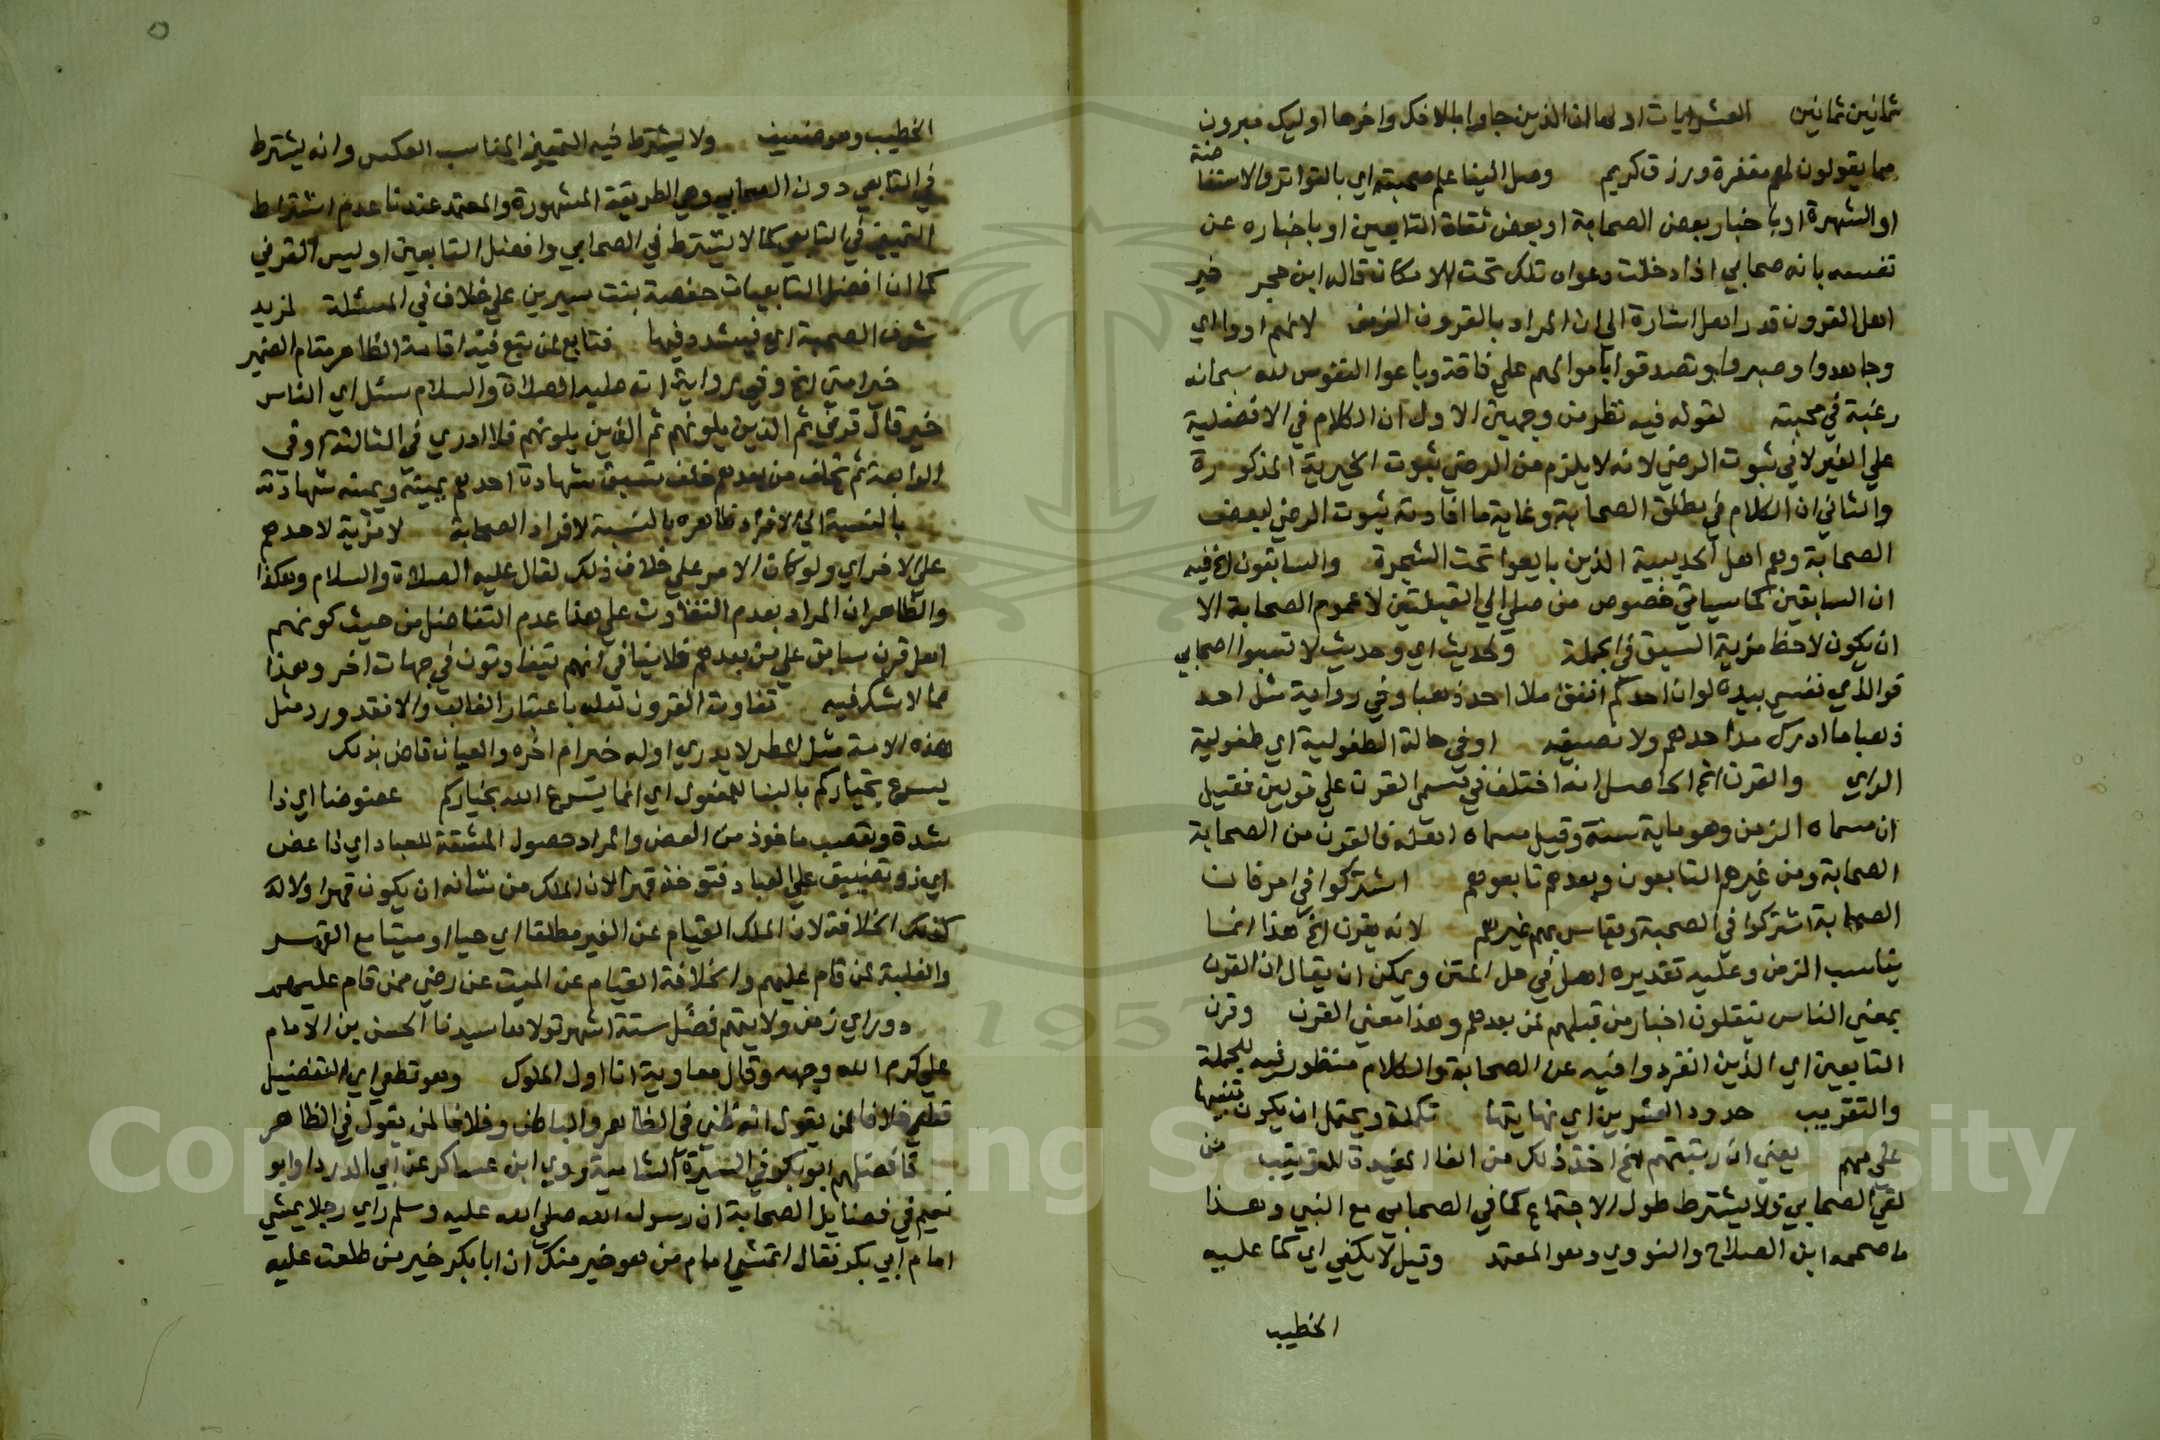 ثمانين ثمانين العشر ايات اولها ان الذين جاوا بالافك واخرها اوليك مبرون
مما يقولون لهم مغفرة ورزق كريم وصل الينا علم صحبته اي بالتواتر والاستفا
ضة
او الشهرة او باخبار بعض الصحابة او بعض ثقاة التابعين او باخباره عن
نفسه بانه صحابي اذا دخلت دعواه تلك تحت الامكان قاله ابن حجر خير
اهل القرون قدر اهل اشارة الي ان المراد بالقرون الزمن لانهم اووا اي
وجاهدوا وصبروا وتصدقوا باموالهم علي فاقة وباعوا النفوس لله سبحانه
رغبة في محبته لقوله فيه نظر من وجهين الاول ان الكلام في الافضلية
علي الغير لا في ثبوت الرضي لانه لا يلزم من الرضي ثبوت الخيرية المذكورة
والثاني ان الكلام في مطلق الصحابة وغاية ما افادته ثبوت الرضي لبعض
الصحابة وهم اهل الحديبية الذين بايعوا تحت الشجرة والسابقون الخ فيه
ان السابقين كما سياتي خصوص من صلي الي القبلتين لا عموم الصحابة الا
ان يكون لاحظ مزية السبق في الجملة ولحديث اي وحديث لا تسبوا اصحابي
فوالذي نفسي بيده لو ان احدكم انفق ملا احد ذهبا وفي رواية مثل احد
ذهبا ما ادرك مد احدهم ولا نصيفه او في حالة الطفولية اي طفولية
الراي والقرن الخ الحاصل انه اختلف في مسمي القرن علي قولين فقيل
ان مسماه الزمن وهو ماية سنة وقيل مسماه اهله فالقرن من الصحابة
الصحابة ومن غيرهم التابعون وبعدهم تابعوهم اشتركوا في امر فان
الصحابة اشتركوا في الصحبة ويقاس بهم غيرهم لانه يقرن الخ هذا انما
يناسب الزمن وعليه تقديره اهل في حل المتن ويمكن ان يقال ان القرن
بمعني الناس ينقلون اخبار من قبلهم لمن بعدهم وهذا معني القرن وقرن
التابعين اي الذين انفردوا فيه عن الصحابة والكلام منظور فيه للجملة
والتقريب حدود العشرين اي نهايتها تكملة ويحتمل ان يكون تنبيها
علي مهم يعني ان رتبتهم الخ اخذ ذلك من الفا المفيدة للترتيب من
لقي الصحابي ولا يشترط طول الاجتماع كما في الصحابي مع النبي وهذا
ما صححه ابن الصلاح والنووي وهو المعتمد وقيل لا يكفي اي كما عليه
الخطيب
الخطيب وهو ضعيف ولا يشترط فيه التمييز المناسب العكس وانه يشترط
في التابعي دون الصحابي وهي الطريقة المشهورة والمعتمد عندنا عدم اشتراط
التمييز في التابعي كما لا يشترط في الصحابي وافضل التابعين اويس القرني
كما ان افضل التابعيات حفصة بنت سيرين علي خلاف في المسئلة لمزيد
شرف الصحبة اي فيشدد فيها فتابع لمن تبع فيه اقامة الظاهر مقام الضمير
خير امتي الخ وفي رواية انه عليه الصلاة والسلام سئل اي الناس
خير قال قرني ثم الذين يلونهم ثم الذين يلونهم فلا ادري في الثالثة او في
الرابعة ثم تخلف من بعدهم خلف تسبق شهادة احدهم يمينه ويمينه شهادته
بالنسبة الي الافراد ظاهره بالنسبة لافراد الصحابة لا مزية لاحدهم
علي الاخر اي ولو كان الامر علي خلاف ذلك لقال عليه الصلاة والسلام وهكذا
والظاهر ان المراد بعدم التفاوت علي هذا عدم التفاضل من حيث كونهم
اهل قرن سابق علي من بعدهم فلا ينافي انهم يتفاوتون في جهات اخر وهذا
مما لا شك فيه تفاوت القرون لعله باعتبار الغالب والا فقد ورد مثل
هذه الامة مثل المطر لا يدري اوله خير ام اخره والعيان قاض بذلك
يسرع بخياركم بالبنا للمفعول اي انما يسرع الله بخياركم عضوضا اي ذا
شدة وتعصب ماخوذ من العض والمراد حصول المشقة للعباد اي ذا عض
اي ذو تضييق علي العباد فتوخذ قهرا لان الملك من شانه ان يكون قهرا ولا
كذلك الخلافة لان الملك القيام عن الغير مطلقا اي حيا او ميتا مع القهر
والغلبة لمن قام عليهم والخلافة القيام عن الميت عن رضي ممن قام عليهم
دور اي زمن ولايتهم فضل ستة اشهر تولاها سيدنا الحسن بن الامام
علي كرم الله وجهه وقال معاوية انا اول الملوك وهو قطعي اي التفضيل
قطعي خلافا لمن يقول انه ظني في الظاهر والباطن وخلافا لمن يقول في الظاهر
فافضلهم ابو بكر في السيرة الشامية روي ابن عساكر عن ابي الدردا وابو
نعيم في فضايل الصحابة ان رسول الله صلي الله عليه وسلم راي رجلا يمشي
امام ابي بكر فقال اتمشي امام من هو خير منك ان ابا بكر خير من طلعت عليه
Copyright King Saud University
1957